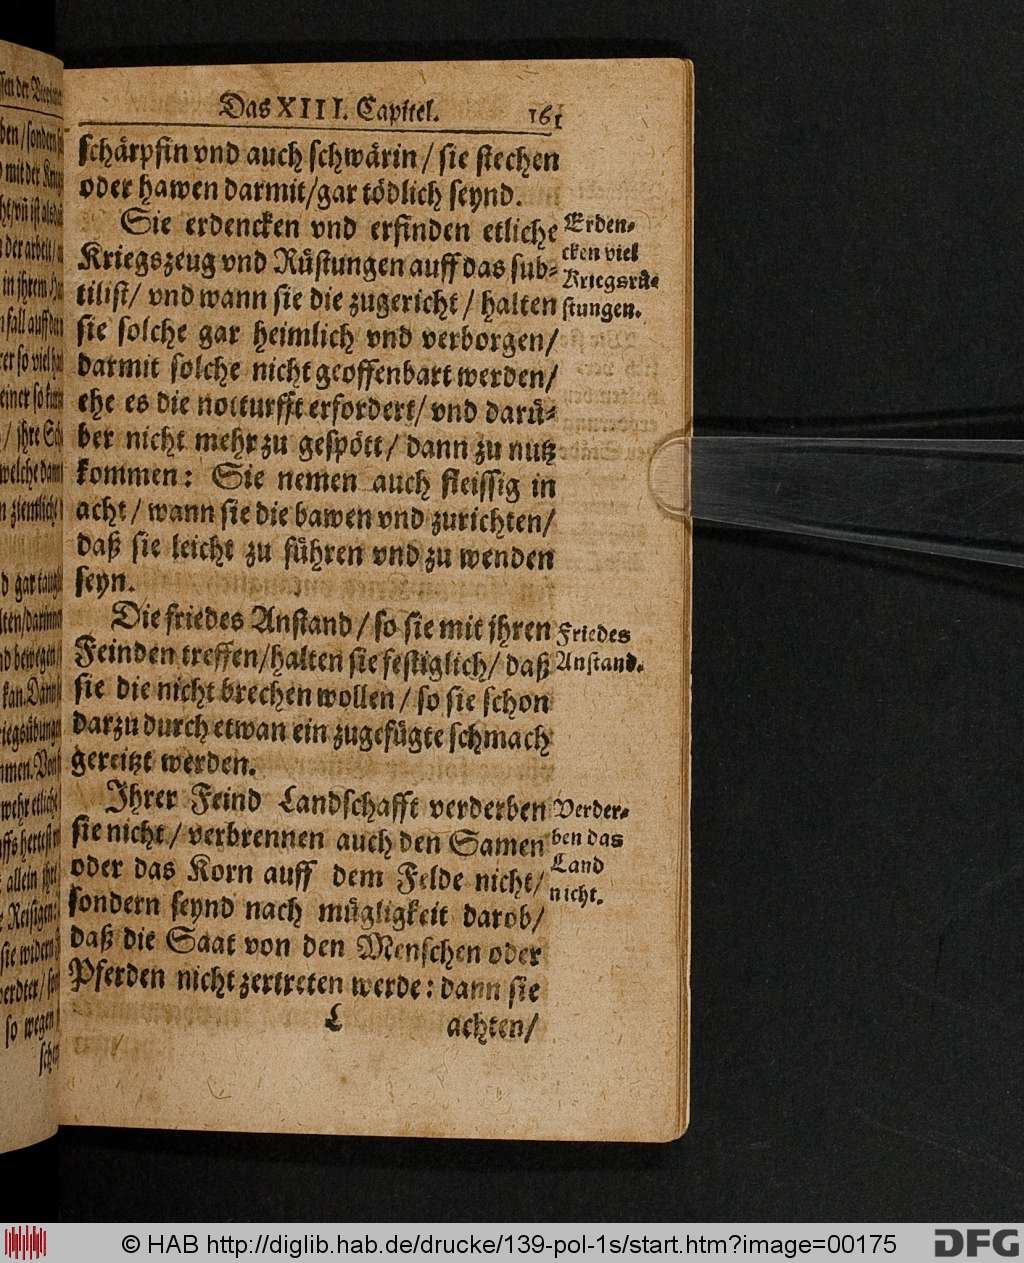 Das XIII. Capitel. 161
schärpfin vnd auch schwärin / sie stechen
oder hawen darmit/gar tödlich seynd.
Sie erdencken vnd erfinden etliche
Kriegszeug vnd Rüstungen auff das sub-
tilist/ vnd wann sie die zugericht / halten
sie solche gar heimlich vnd verborgen/
darmit solche nicht geoffenbart werden/
ehe es die notturfft erfordert/ vnd darü-
ber nicht mehr zu gespött/ dann zu nutz
kommen: Sie nemen auch fleissig in
acht / wann sie die bawen vnd zurichten/
daß sie leicht zu führen vnd zu wenden
seyn.
Erden-
cken viel
Kriegsrü-
stungen.
Die friedes Anstand / so sie mit ihren
Feinden treffen/halten sie festiglich/ daß
sie die nicht brechen wollen / so sie schon
darzu durch etwan ein zugefügte schmach
gereitzt werden.
Friedes
Anstand.
Ihrer Feind Landschafft verderben
sie nicht / verbrennen auch den Samen
oder das Korn auff dem Felde nicht/
sondern seynd nach mügligkeit darob/
daß die Saat von den Menschen oder
Pferden nicht zertreten werde: dann sie
Verder-
ben das
Land
nicht.
L achten/
© HAB http://diglib.hab.de/drucke/139-pol-1s/start.htm?image=00175
DFG